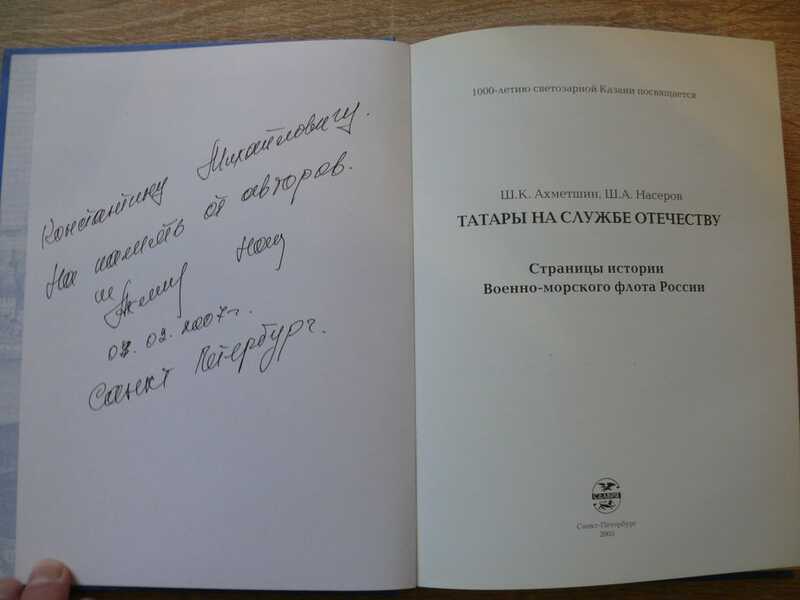 Константину Михайловичу.
На память от авторов.
2007г.
Санкт Петербург.
1000-летию светозарной Казани посвящается
Ш.К. Ахметшин, Ш.А. Насеров
ТАТАРЫ НА СЛУЖБЕ ОТЕЧЕСТВУ
Страницы истории
Военно-морского флота России
СЛАВИЯ
Санкт-Петербург
2005